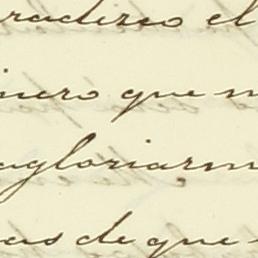 radizco el
inero que m
agloriarm
as de que